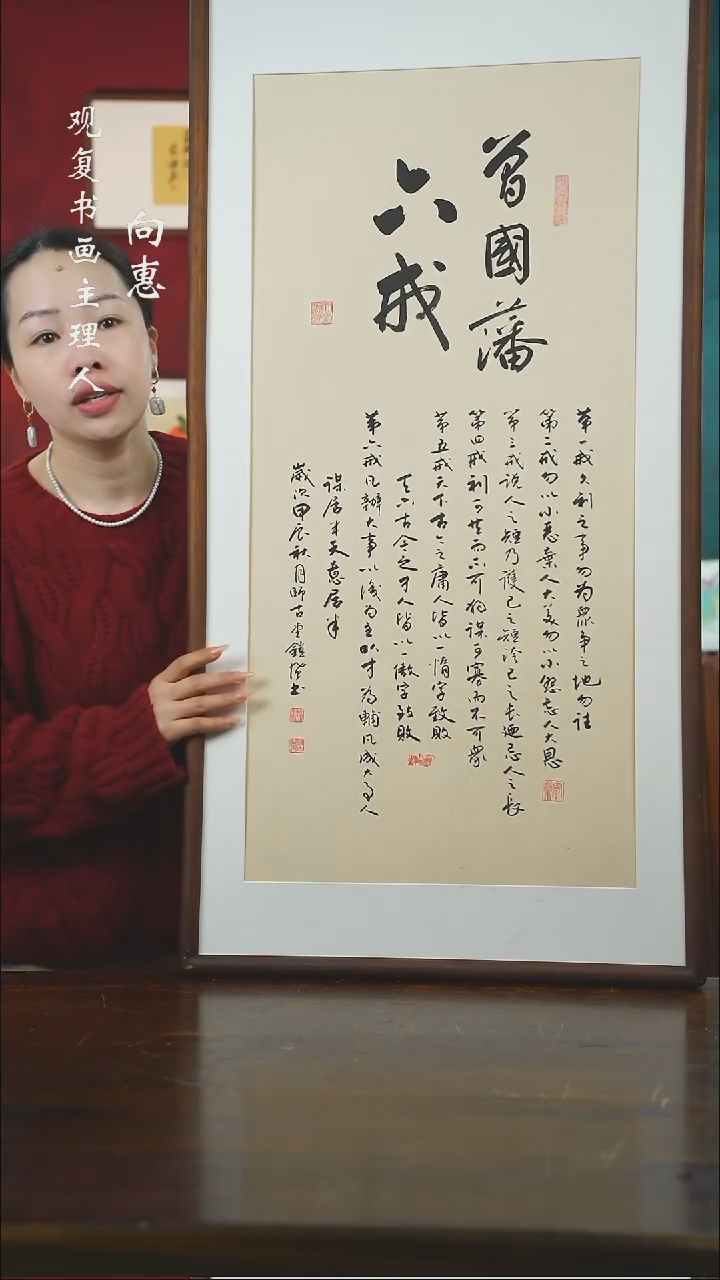 观复书画主理人
向惠
曾國藩
六戒
第一戒久利之事勿为眾争之地勿往
第二戒勿以小恶棄人大美勿以小怨忘人大恩
第三戒说人之短乃護己之短夸己之长迺忌人之長
第四戒利可共而不可独谋可寡而不可眾
第五戒天下古今之庸人皆以一惰字致败
天下古今之才人皆以一傲字致败
第六戒凡辦大事以識为主以才为輔凡成大事人
谋居半天意居半
歲次甲辰秋月師古堂鎧书